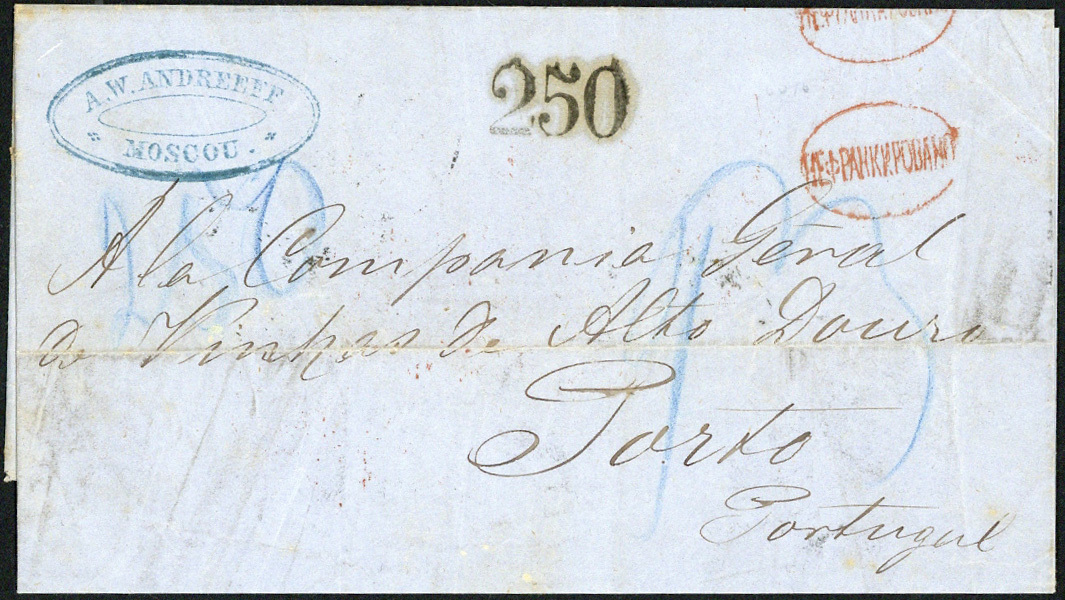 A.W. ANDREEFF
MOSCOU.
250
НЕФРАНКИРОВАНО
НЕФРАНКИРОВАНО
A la Compania Géral
de Vinhas de Alto Douro
Porto
Portugal